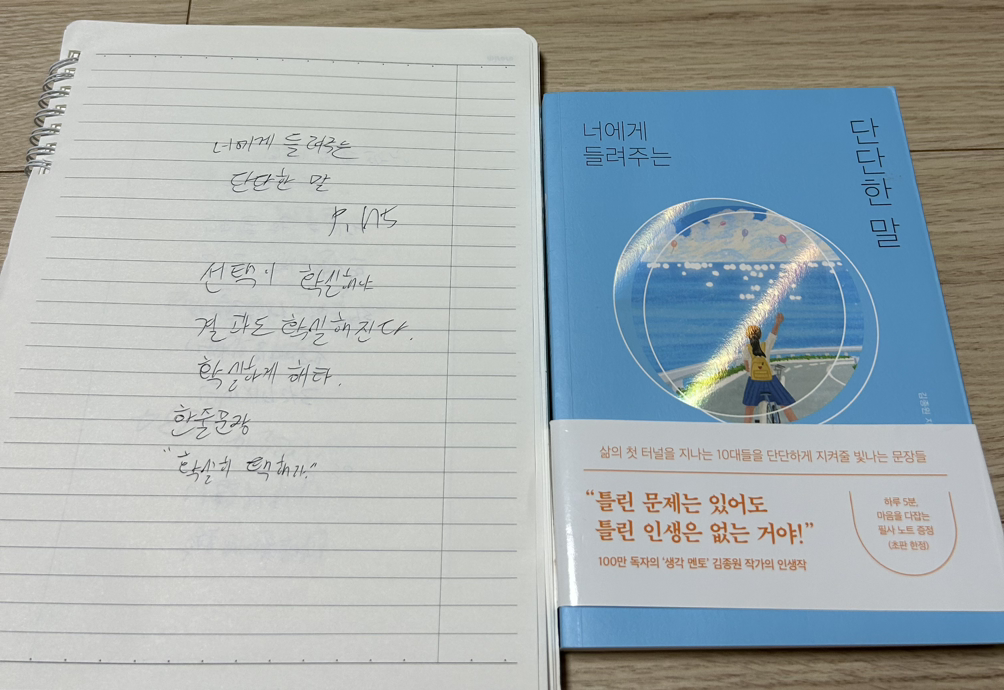 너에게 들려주는
단단한 말
P. 175
선택이 확실해야
결과도 확실해진다.
확실하게 해라.
한줄문장
"확실히 택해라."
너에게
들려주는
단단한 말
김종원 지
삶의 첫 터널을 지나는 10대들을 단단하게 지켜줄 빛나는 문장들
“틀린 문제는 있어도
틀린 인생은 없는 거야!”
100만 독자의 ‘생각 멘토’ 김종원 작가의 인생작
하루 5분,
마음을 다잡는
필사 노트 증정
(초판 한정)